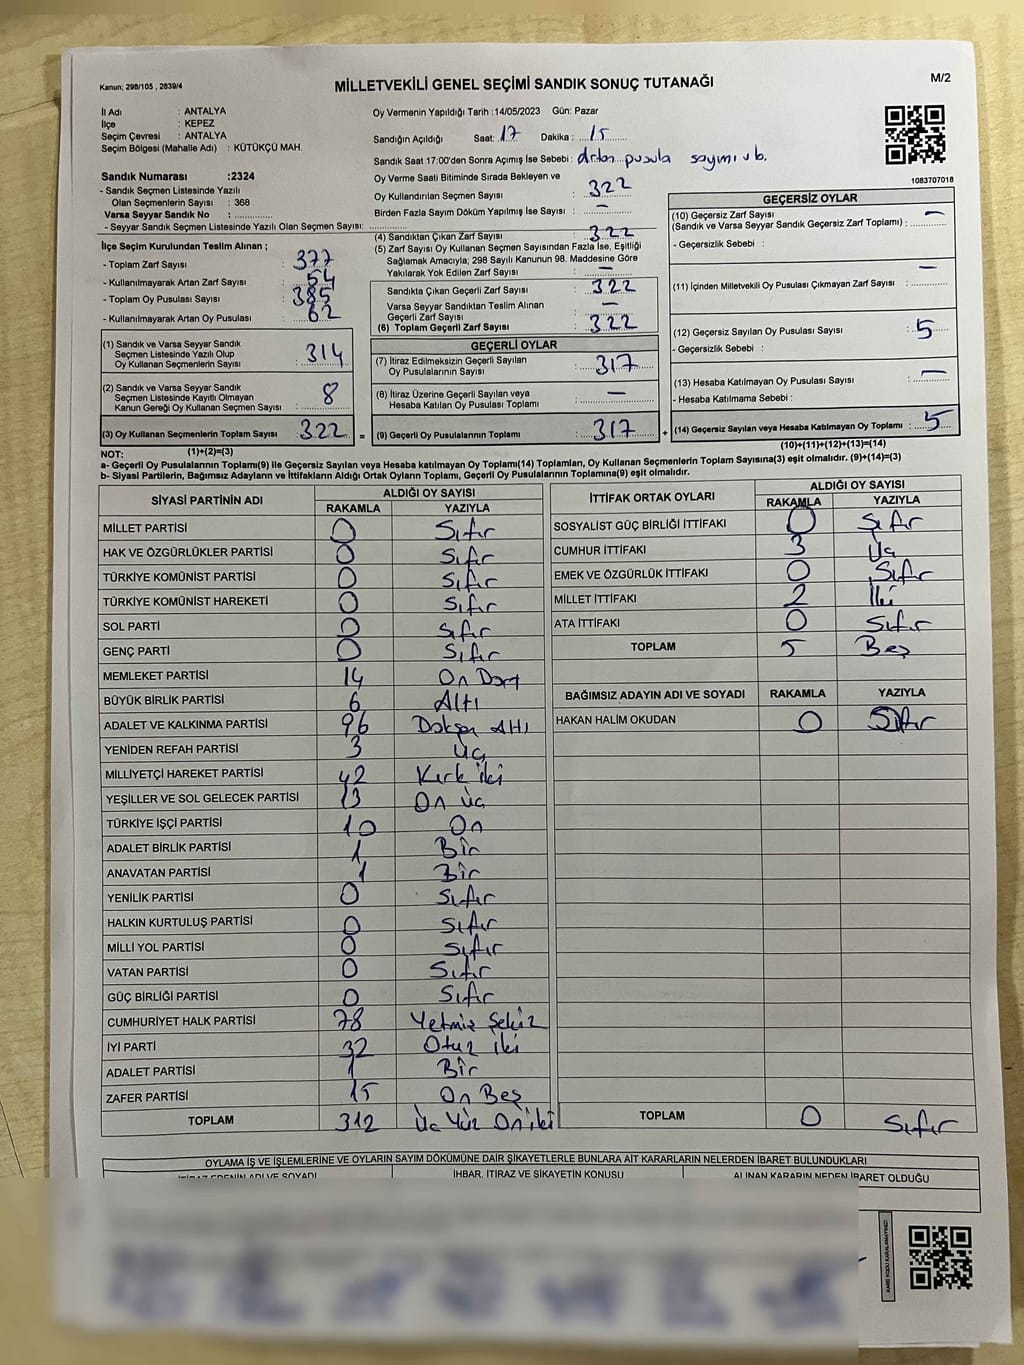 Kanun; 298/105 , 2839/4
MİLLETVEKİLİ GENEL SEÇİMİ SANDIK SONUÇ TUTANAĞI
M/2
İl Adı : ANTALYA
İlçe : KEPEZ
Seçim Çevresi : ANTALYA
Seçim Bölgesi (Mahalle Adı) : KÜTÜKÇÜ MAH.
Sandık Numarası :2324
- Sandık Seçmen Listesinde Yazılı
Olan Seçmenlerin Sayısı : 368
Varsa Seyyar Sandık No : ..............
- Seyyar Sandık Seçmen Listesinde Yazılı Olan Seçmen Sayısı: ..............
Oy Vermenin Yapıldığı Tarih :14/05/2023 Gün: Pazar
Sandığın Açıldığı Saat: 17 Dakika : 15
Sandık Saat 17:00'den Sonra Açımış İse Sebebi : artan pusula sayımı vb.
Oy Verme Saati Bitiminde Sırada Bekleyen ve
Oy Kullandırılan Seçmen Sayısı : 322
Birden Fazla Sayım Döküm Yapılmış İse Sayısı : —
1083707018
İlçe Seçim Kurulundan Teslim Alınan ;
- Toplam Zarf Sayısı : 377
- Kullanılmayarak Artan Zarf Sayısı : 54
- Toplam Oy Pusulası Sayısı : 385
- Kullanılmayarak Artan Oy Pusulası : 62
(1) Sandık ve Varsa Seyyar Sandık
Seçmen Listesinde Yazılı Olup
Oy Kullanan Seçmenlerin Sayısı : 314
(2) Sandık ve Varsa Seyyar Sandık
Seçmen Listesinde Kayıtlı Olmayan
Kanun Gereği Oy Kullanan Seçmen Sayısı : 8
(3) Oy Kullanan Seçmenlerin Toplam Sayısı : 322
(1)+(2)=(3)
(4) Sandıktan Çıkan Zarf Sayısı : 322
(5) Zarf Sayısı Oy Kullanan Seçmen Sayısından Fazla İse, Eşitliği
Sağlamak Amacıyla; 298 Sayılı Kanunun 98. Maddesine Göre
Yakılarak Yok Edilen Zarf Sayısı : —
Sandıkta Çıkan Geçerli Zarf Sayısı : 322
Varsa Seyyar Sandıktan Teslim Alınan
Geçerli Zarf Sayısı : —
(6) Toplam Geçerli Zarf Sayısı : 322
GEÇERLİ OYLAR
(7) İtiraz Edilmeksizin Geçerli Sayılan
Oy Pusulalarının Sayısı : 317
(8) İtiraz Üzerine Geçerli Sayılan veya
Hesaba Katılan Oy Pusulası Toplamı : —
= (9) Geçerli Oy Pusulalarının Toplamı : 317
GEÇERSİZ OYLAR
(10) Geçersiz Zarf Sayısı
(Sandık ve Varsa Seyyar Sandık Geçersiz Zarf Toplamı) : —
- Geçersizlik Sebebi :
(11) İçinden Milletvekili Oy Pusulası Çıkmayan Zarf Sayısı : —
(12) Geçersiz Sayılan Oy Pusulası Sayısı : 5
- Geçersizlik Sebebi :
(13) Hesaba Katılmayan Oy Pusulası Sayısı : —
- Hesaba Katılmama Sebebi :
+ (14) Geçersiz Sayılan veya Hesaba Katılmayan Oy Toplamı : 5
(10)+(11)+(12)+(13)=(14)
NOT:
a- Geçerli Oy Pusulalarının Toplamı(9) ile Geçersiz Sayılan veya Hesaba katılmayan Oy Toplamı(14) Toplamları, Oy Kullanan Seçmenlerin Toplam Sayısına(3) eşit olmalıdır. (9)+(14)=(3)
b- Siyasi Partilerin, Bağımsız Adayların ve İttifakların Aldığı Ortak Oyların Toplamı, Geçerli Oy Pusulalarının Toplamına(9) eşit olmalıdır.
SİYASİ PARTİNİN ADI ALDIĞI OY SAYISI
RAKAMLA YAZIYLA
MİLLET PARTİSİ 0 Sıfır
HAK VE ÖZGÜRLÜKLER PARTİSİ 0 Sıfır
TÜRKİYE KOMÜNİST PARTİSİ 0 Sıfır
TÜRKİYE KOMÜNİST HAREKETİ 0 Sıfır
SOL PARTİ 0 Sıfır
GENÇ PARTİ 0 Sıfır
MEMLEKET PARTİSİ 14 On Dört
BÜYÜK BİRLİK PARTİSİ 6 Altı
ADALET VE KALKINMA PARTİSİ 96 Doksan Altı
YENİDEN REFAH PARTİSİ 3 Üç
MİLLİYETÇİ HAREKET PARTİSİ 42 Kırk iki
YEŞİLLER VE SOL GELECEK PARTİSİ 13 On üç
TÜRKİYE İŞÇİ PARTİSİ 10 On
ADALET BİRLİK PARTİSİ 1 Bir
ANAVATAN PARTİSİ 1 Bir
YENİLİK PARTİSİ 0 Sıfır
HALKIN KURTULUŞ PARTİSİ 0 Sıfır
MİLLİ YOL PARTİSİ 0 Sıfır
VATAN PARTİSİ 0 Sıfır
GÜÇ BİRLİĞİ PARTİSİ 0 Sıfır
CUMHURİYET HALK PARTİSİ 78 Yetmiş Sekiz
İYİ PARTİ 32 Otuz iki
ADALET PARTİSİ 1 Bir
ZAFER PARTİSİ 15 On Beş
TOPLAM 312 Üç Yüz On iki
İTTİFAK ORTAK OYLARI ALDIĞI OY SAYISI
RAKAMLA YAZIYLA
SOSYALİST GÜÇ BİRLİĞİ İTTİFAKI 0 Sıfır
CUMHUR İTTİFAKI 3 Üç
EMEK VE ÖZGÜRLÜK İTTİFAKI 0 Sıfır
MİLLET İTTİFAKI 2 İki
ATA İTTİFAKI 0 Sıfır
TOPLAM 5 Beş
BAĞIMSIZ ADAYIN ADI VE SOYADI RAKAMLA YAZIYLA
HAKAN HALİM OKUDAN 0 Sıfır
TOPLAM 0 Sıfır
OYLAMA İŞ VE İŞLEMLERİNE VE OYLARIN SAYIM DÖKÜMÜNE DAİR ŞİKAYETLERLE BUNLARA AİT KARARLARIN NELERDEN İBARET BULUNDUKLARI
İTİRAZ EDENİN ADI VE SOYADI İHBAR, İTİRAZ VE ŞİKAYETİN KONUSU ALINAN KARARIN NEDEN İBARET OLDUĞU
KARE KODU KARALAMAYINIZ!